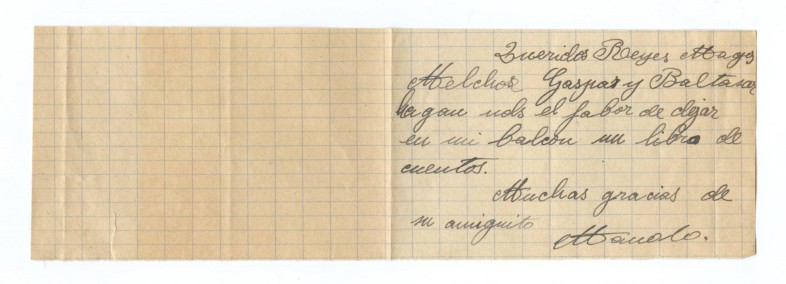 Queridos Reyes Magos
Melchor Gaspar y Baltasar
hagan uds el fabor de dejar
en mi balcon un libro de
cuentos.
Muchas gracias de
su amiguito
Manolo.